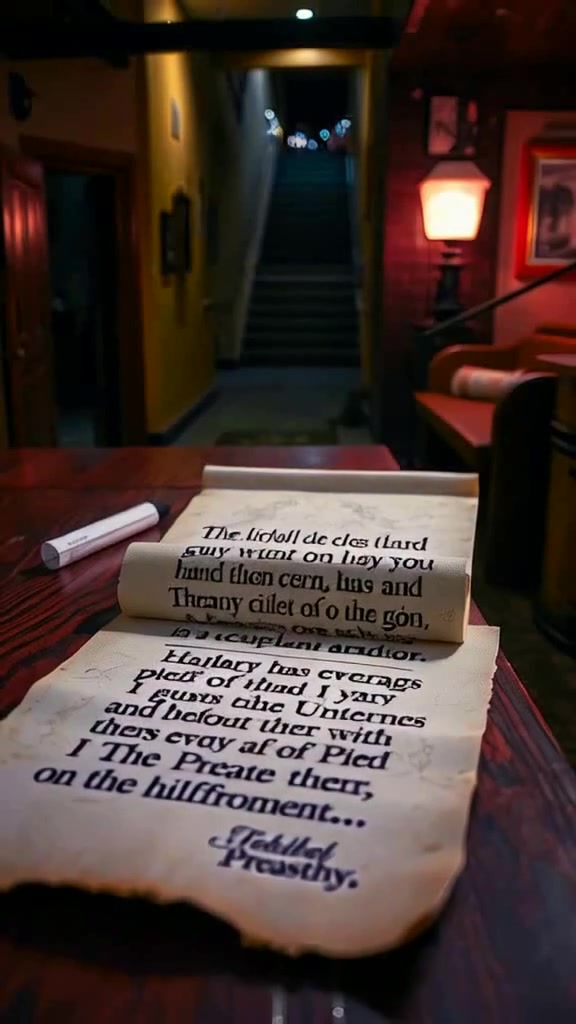 The lidoll de clos thard
guy wimt on hay you
hund thon cern, lus and
Thrany cillet of o the gón,
is a
Hatlary has cverags
pletf of thad I yary
I gusts the Unternes
and hefout ther with
thers evay af of Pied
I The Preate therr,
on the hilffroment...
Preasthy.